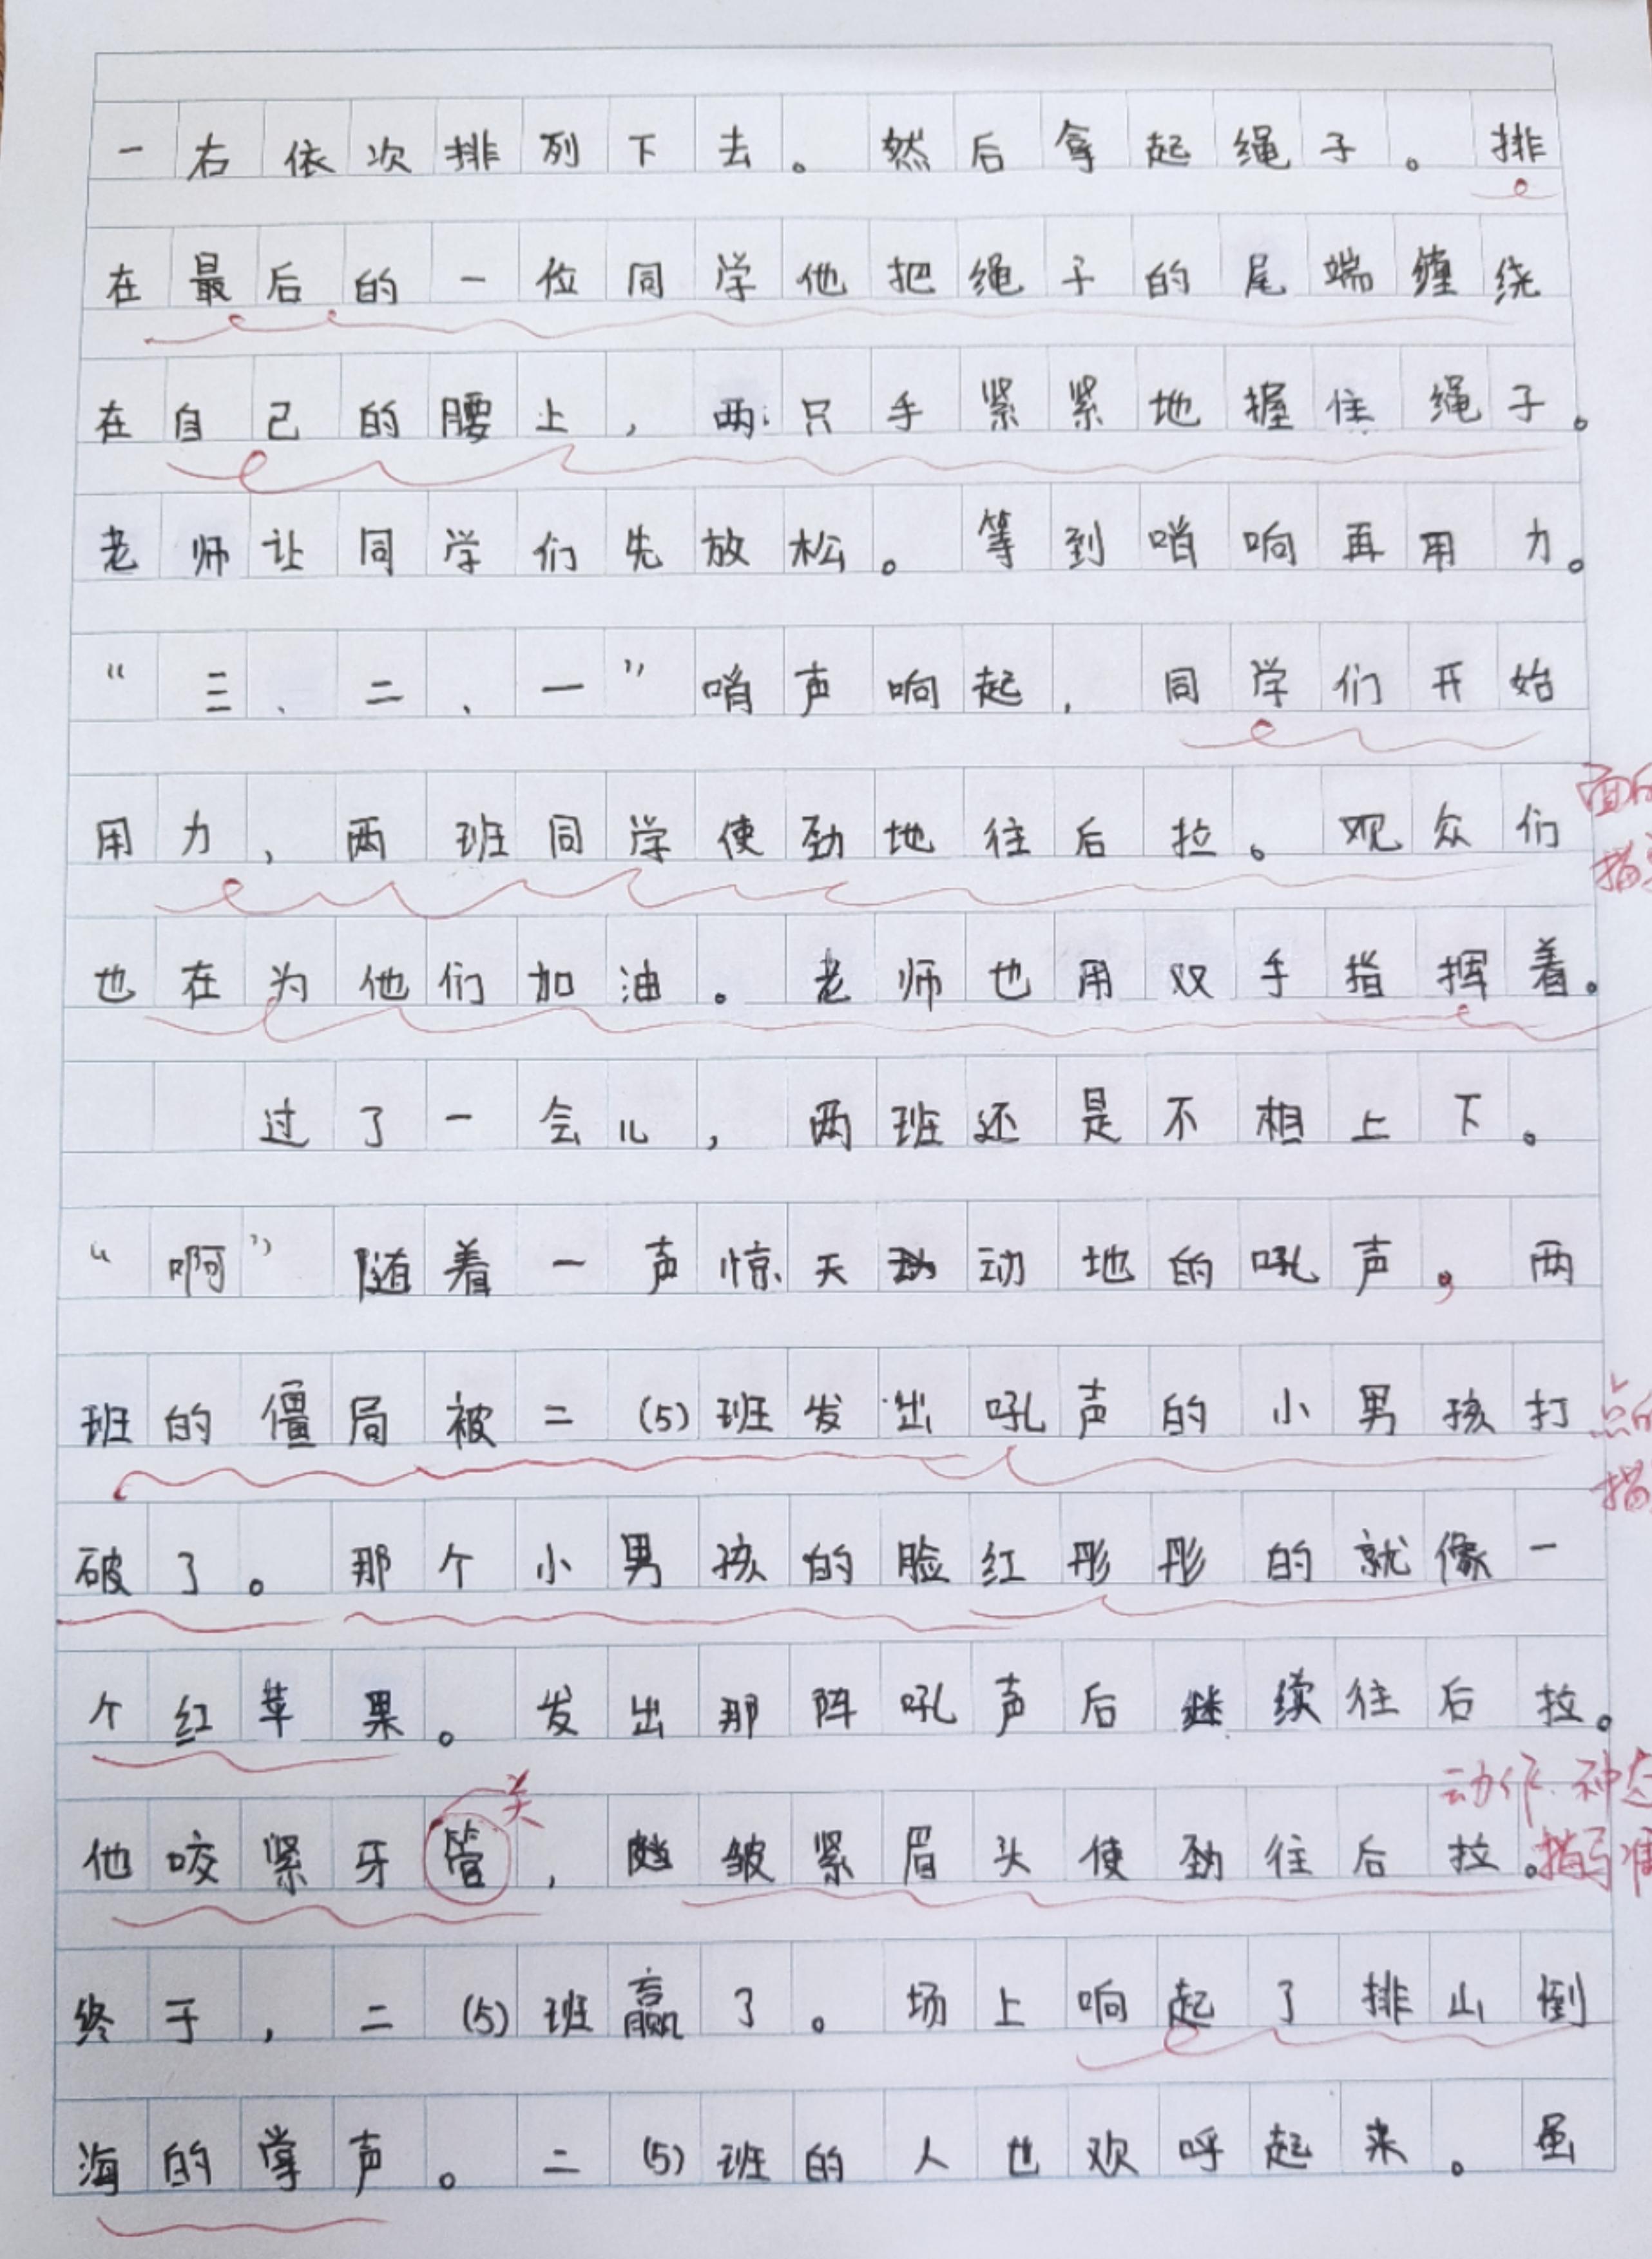 一右依次排列下去。然后拿起绳子。排
在最后的一位同学他把绳子的尾端缠绕
在自己的腰上，两只手紧紧地握住绳子。
老师让同学们先放松。等到哨响再用力。
“三、二、一”哨声响起，同学们开始
用力，两班同学使劲地往后拉。观众们
面
描
也在为他们加油。老师也用双手指挥着。
过了一会儿，两班还是不相上下。
“啊”随着一声惊天动地的吼声，两
班的僵局被二(5)班发出吼声的小男孩打
点
描
破了。那个小男孩的脸红彤彤的就像一
个红苹果。发出那阵吼声后继续往后拉。
动作、神态
关
他咬紧牙管，皱紧眉头使劲往后拉。描写准
终于，二(5)班赢了。场上响起了排山倒
海的掌声。二(5)班的人也欢呼起来。虽